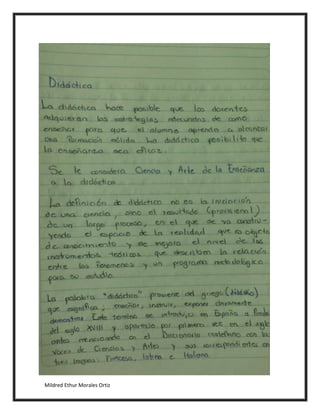 Didáctica
La didáctica hace posible que los docentes
adquieran las estrategias adecuadas de como
enseñar para que el alumno aprenda a alcanzar
una formación sólida La didáctica posibilita que
la enseñanza sea eficaz.
Se le considera Ciencia y Arte de la Enseñanza
a la didáctica
La definición de didáctica no es la iniciación
de una ciencia, sino el resultado (provisional)
de un largo proceso, en el que se va constru-
yendo el espacio de la realidad que es objeto
de conocimiento y se mejora el nivel de los
instrumentos teóricos que describen la relación
entre los fenómenos y un programa metodológico
para su estudio.
La palabra "didáctica" proviene del griego
que significa, enseñar, instruir, exponer claramente
demostrar Este término se introdujo en España a finales
del siglo XVIII y apareció por primera vez en el siglo
antes mencionado en el Diccionario castellano con las
voces de Ciencias y Artes y sus correspondientes en
tres lenguas: Francesa, latina e Italiana
Mildred Ethur Morales Ortiz